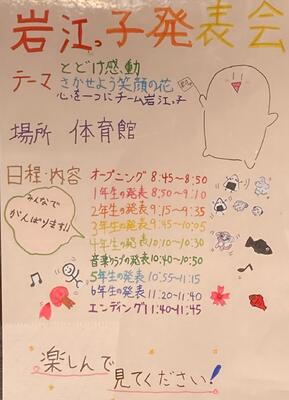 岩江っ子発表会
テーマ とどけ感動
さかせよう笑顔の花
心を一つにチーム岩江っ子
場所 体育館
日程・内容
オープニング 8:45~8:50
1年生の発表 8:50~9:10
2年生の発表 9:15~9:35
3年生の発表 9:45~10:05
4年生の発表 10:10~10:30
音楽クラブの発表 10:40~10:50
5年生の発表 10:55~11:15
6年生の発表 11:20~11:40
エンディング 11:40~11:45
みんなで
がんばります!!
楽しんで
見てください!